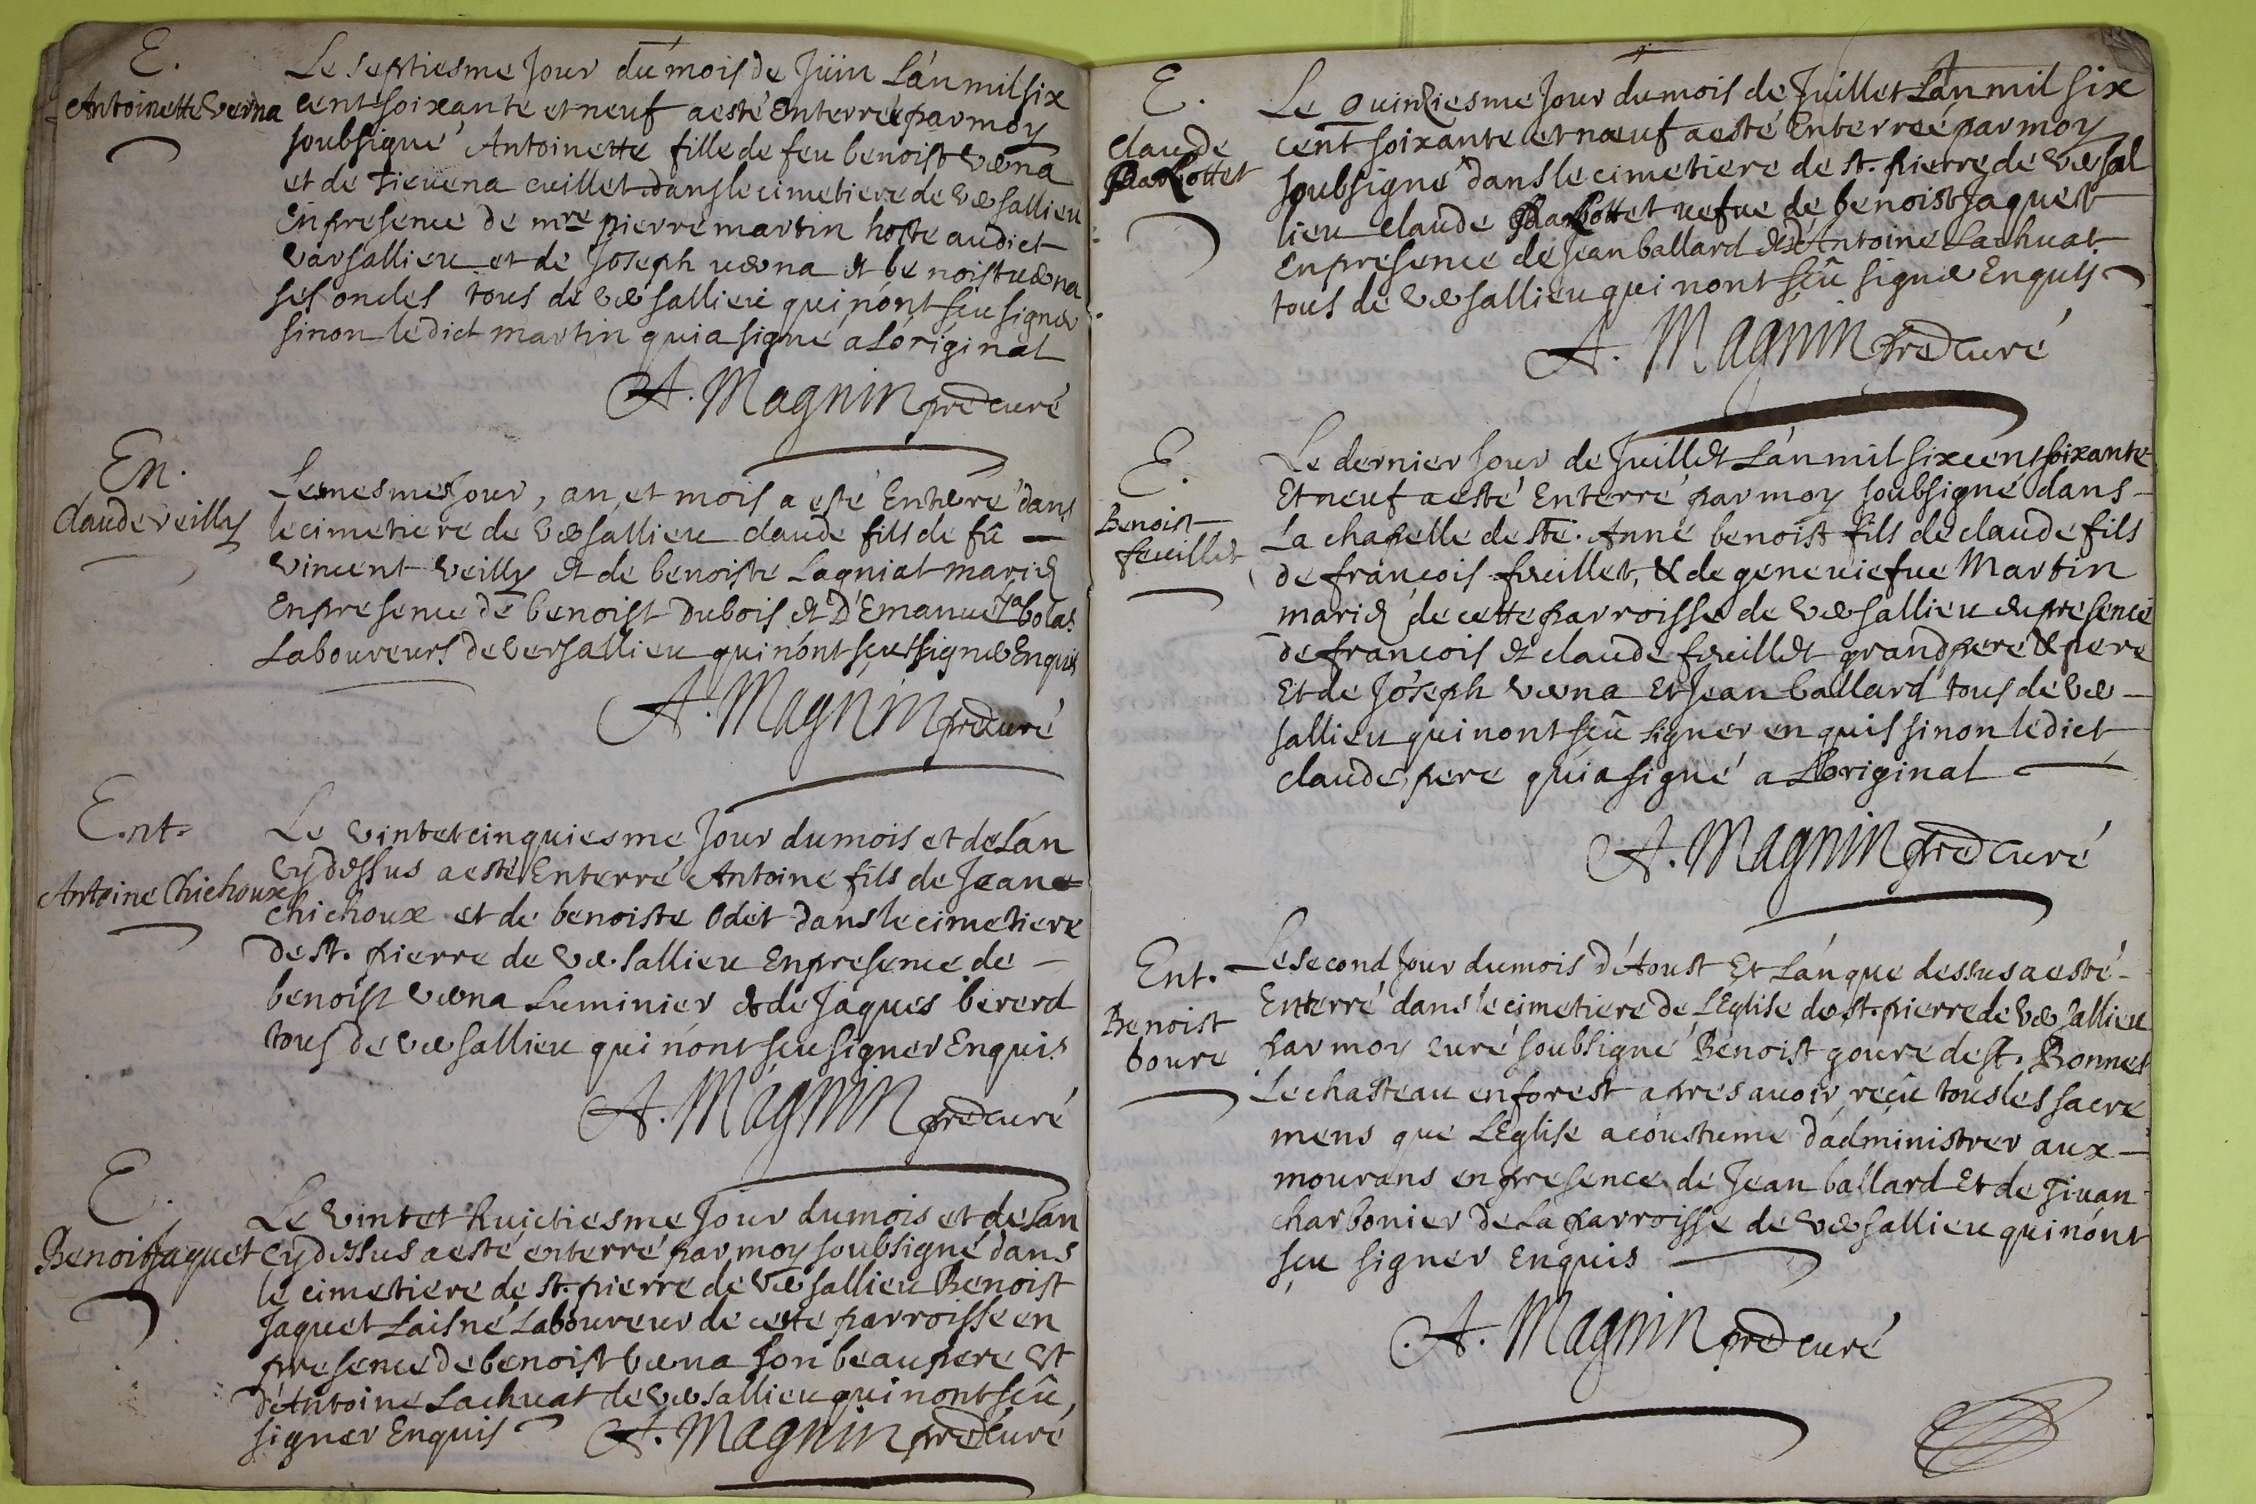 E.
Antoinette Verna
Le septiesme Jour du mois de Juin Lan mil six
cent soixante et neuf a esté Enterrée par moy
soubsigné Antoinette fille de feu benoist verna
et de Tievena cuillet dans le cimetiere de versallieu
En presence de mre pierre martin hoste audict
varsallieu et de Joseph verna et benoist verna
ses oncles tous de versallieu qui nont sçu signer
sinon ledict martin qui a signé a Loriginal
A. Magnin prebcuré
En.
Claude veilly
Le mesme Jour, an, et mois a esté Enterré dans
le cimetiere de versallieu claude fils de fû
vincent veilly et de benoiste Lagniat mariez
En presence de benoist Dubois et D'Emanuel
Laboureurs de versallieu qui nont sçu signer Enquis
A. Magnin prebcuré
E.nt.
Antoine Chichoux
Le vint et cinquiesme Jour du mois et de Lan
cy dessus a esté Enterré Antoine fils de Jean
chichoux et de benoiste Odet dans le cimetiere
de st. pierre de versallieu En presence de
benoist verna Luminier et de Jaques bererd
tous de versallieu qui nont sçu signer Enquis
A. Magnin prebcuré
E.
Benoist Jaquet
Le vint et huictiesme Jour du mois et de Lan
cy dessus a esté enterré par moy soubsigné dans
le cimetiere de st. pierre de versallieu Benoist
Jaquet Laisné Laboureur de ceste parroisse en
presence de benoist verna son beaupere et
d'Antoine Lachuat de versallieu qui nont sçû
signer Enquis
A. Magnin prebcuré
E.
claude
Le Quinziesme Jour du mois de Juillet Lan mil six
cent soixante et neuf a esté Enterreé par moy
soubsigné dans le cimetiere de st. pierre de versal
lieu claude vefue de benoist Jaquet
En presence de Jean ballard et d'Antoine Lachuat
tous de versallieu qui nont sçû signer Enquis
A. Magnin prebcuré
E.
Benoist
feuillet
Le dernier Jour de Juillet Lan mil six cent soixante
Et neuf a esté Enterré par moy soubsigné dans
La chapelle de ste. Anne benoist fils de claude fils
de françois feuillet, & de geneuiefue Martin
mariez de cette parroisse de versallieu en presence
de françois et claude feuillet grand pere & pere
Et de Joseph verna Et Jean ballard tous de ver
sallieu qui nont sçû signer en quis sinon ledict
claude pere qui a signé a Loriginal
A. Magnin prebcuré
Ent.
Benoist
Goure
Le second Jour du mois d'Aoust Et Lan que dessus a esté
Enterré dans le cimetiere de LEglise de st. pierre de versallieu
par moy curé soubsigné Benoist goure de st. Bonnet
Le chasteau en forest apres auoir reçu tous les sacre
mens que LEglise a coustume d'administrer aux
mourans en presence de Jean ballard Et de Jiuan
charbonier de La parroisse de versallieu qui nont
sçu signer Enquis
A. Magnin prebcuré